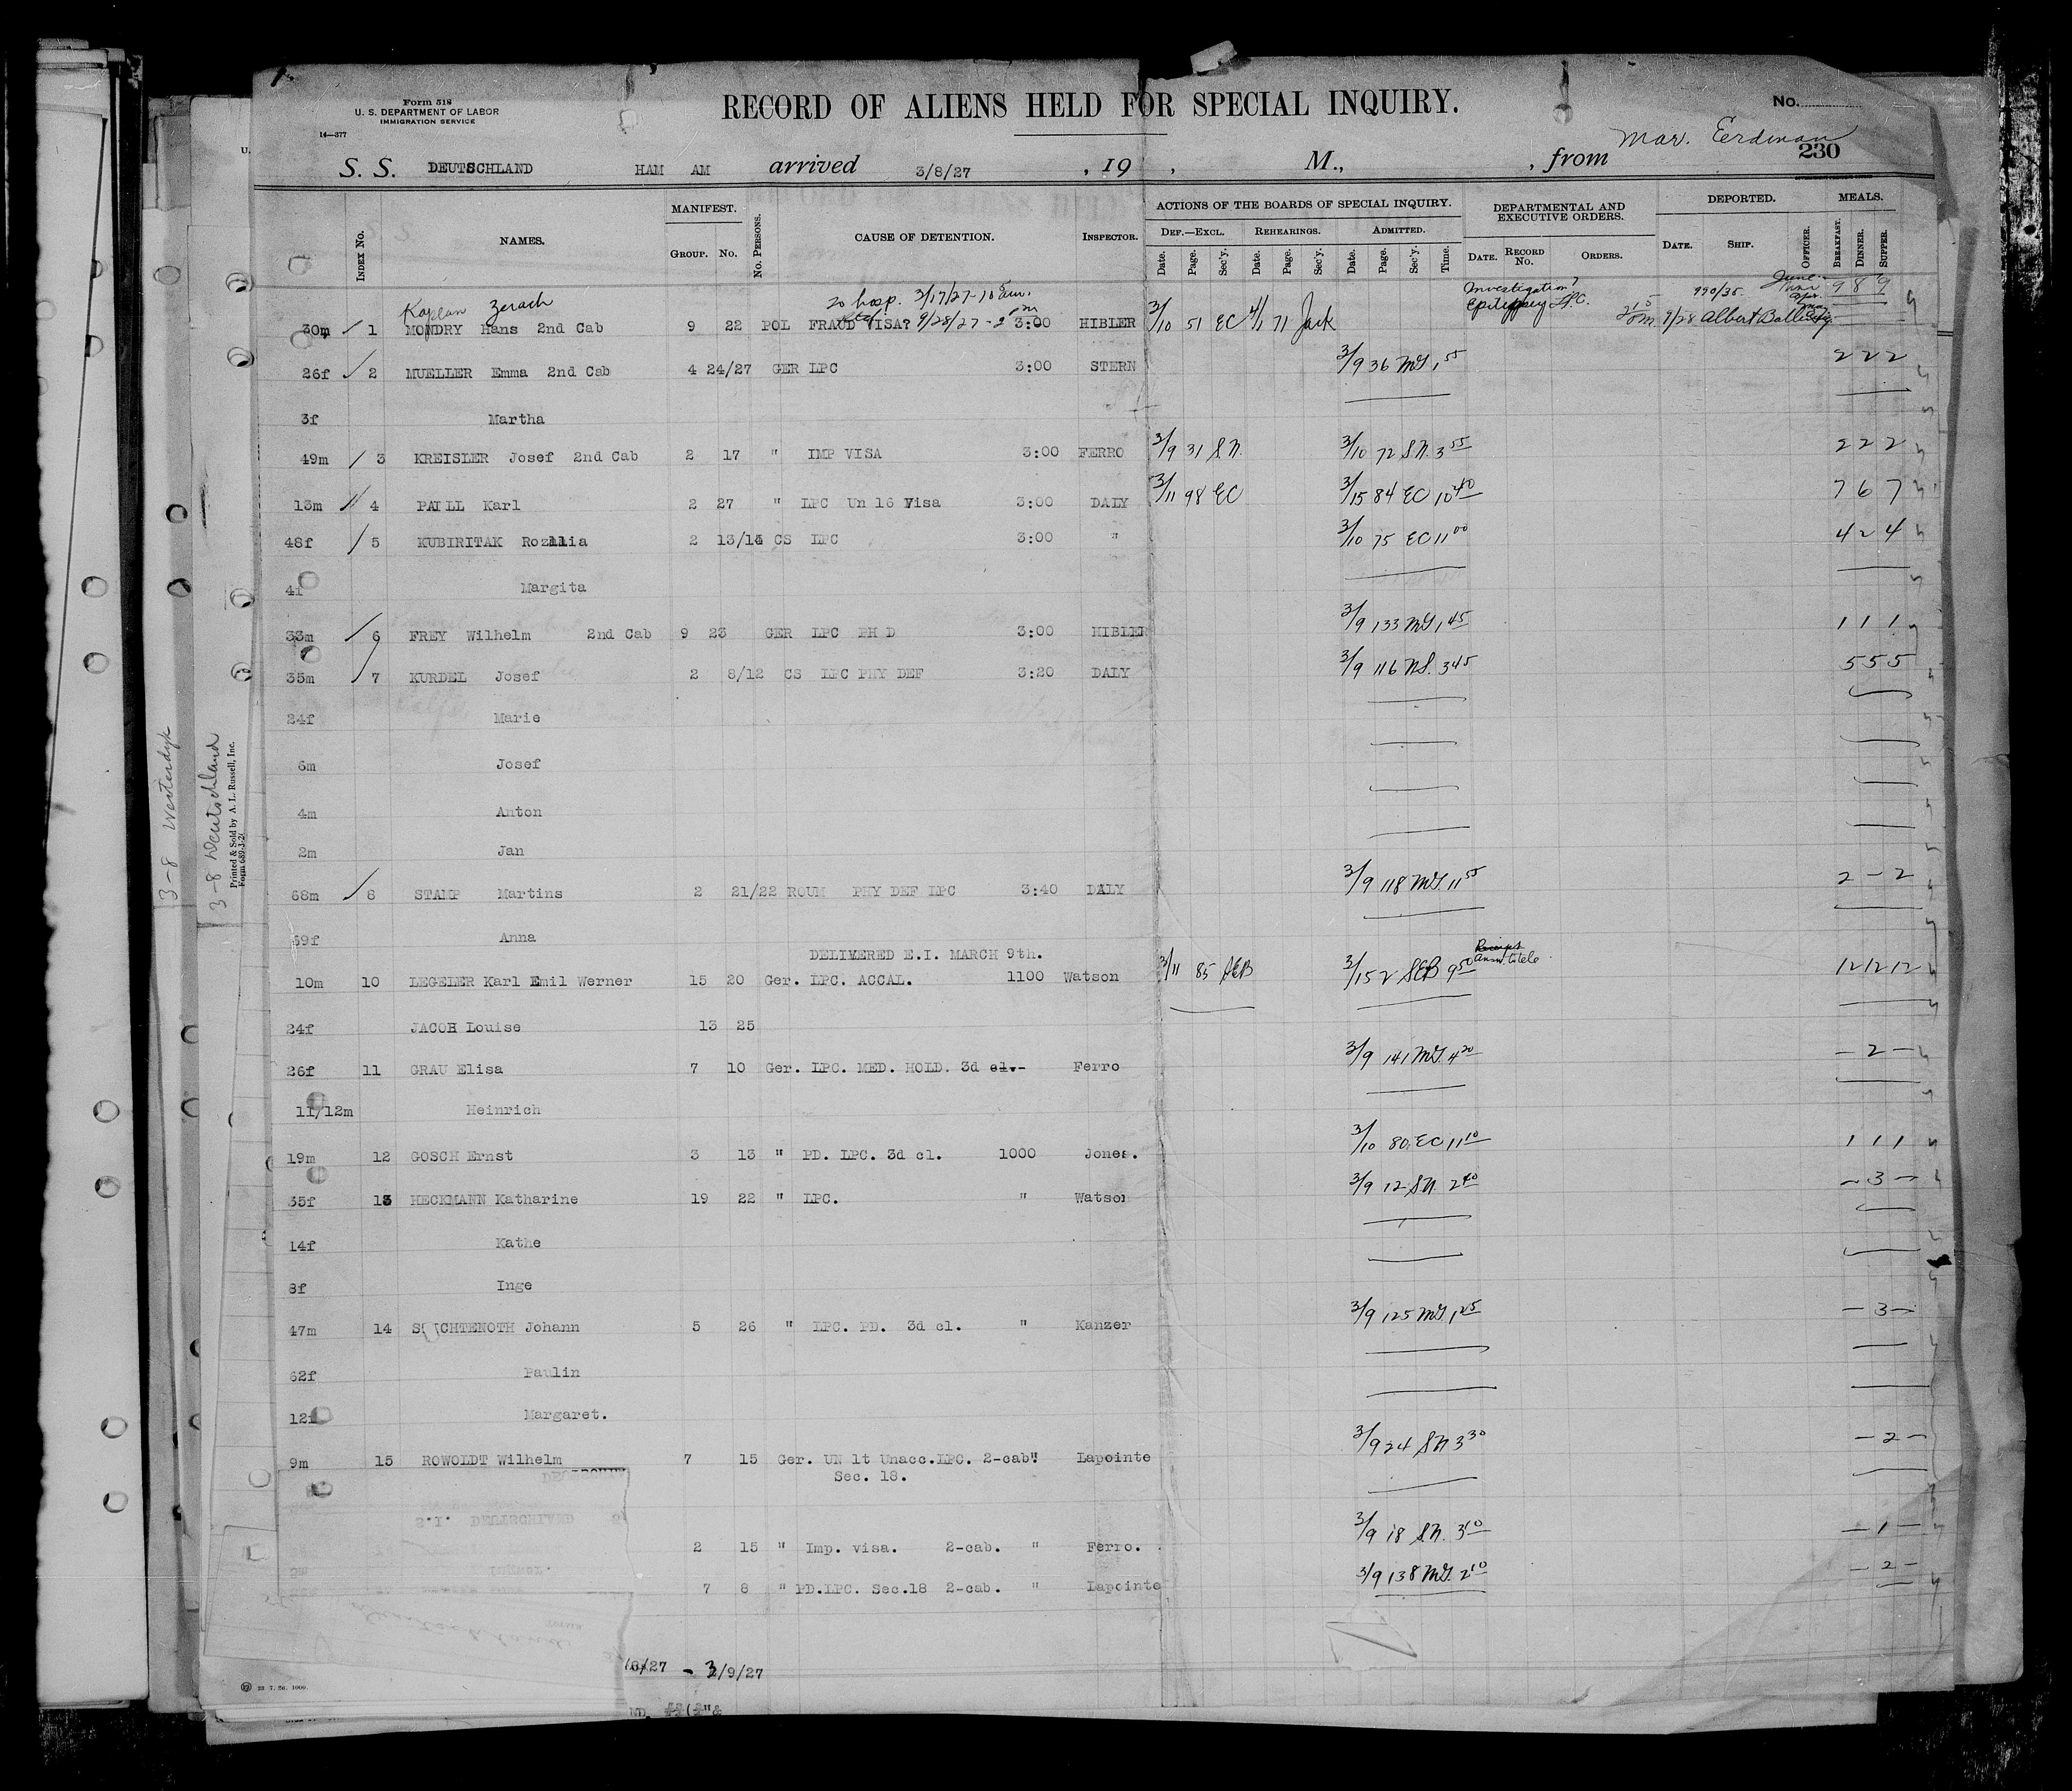 Form 518
U. S. DEPARTMENT OF LABOR
IMMIGRATION SERVICE
14—377
RECORD OF ALIENS HELD FOR SPECIAL INQUIRY.
No.
Mar. Eerdman
230
S. S. DEUTSCHLAND HAM AM arrived 3/8/27 , 19 , M., , from
INDEX No. NAMES. MANIFEST. GROUP. No. No. PERSONS. CAUSE OF DETENTION. INSPECTOR. ACTIONS OF THE BOARDS OF SPECIAL INQUIRY. DEF.—EXCL. Date. Page. Sec'y. REHEARINGS. Date. Page. Sec'y. ADMITTED. Date. Page. Sec'y. Time. DEPARTMENTAL AND EXECUTIVE ORDERS. DATE. RECORD No. ORDERS. DEPORTED. DATE. SHIP. OFFICER. MEALS. BREAKFAST. DINNER. SUPPER.
Kaplan Zerach To hosp. 3/17/27 Investigation? 990/35. 9 8 9
30m 1 MONDRY Hans 2nd Cab 9 22 POL FRAUD VISA? 9/28/27 3:00 HIBLER 3/10 51 EC 4/1 71 Jack Epilepsy LPC. 9/28 Albert Ballin
26f 2 MUELLER Emma 2nd Cab 4 24/27 GER LPC 3:00 STERN 3/9 36 MG 1 55 2 2 2
3f Martha
49m 3 KREISLER Josef 2nd Cab 2 17 " IMP VISA 3:00 FERRO 3/9 31 SN. 3/10 72 SN. 3 55 2 2 2
13m 4 PAILL Karl 2 27 " LPC Un 16 Visa 3:00 DALY 3/11 98 EC 3/15 84 EC 10 40 7 6 7
48f 5 KUBIRITAK Rozalia 2 13/14 CS LPC 3:00 " 3/10 75 EC 11 00 4 2 4
4f Margita
33m 6 FREY Wilhelm 2nd Cab 9 23 GER LPC PH D 3:00 HIBLER 3/9 133 MG 1 45 1 1 1
35m 7 KURDEL Josef 2 8/12 CS LPC PHY DEF 3:20 DALY 3/9 116 NS. 3 45 5 5 5
24f Marie
6m Josef
4m Anton
2m Jan
68m 8 STAMP Martins 2 21/22 ROUM PHY DEF LPC 3:40 DALY 3/9 118 MG. 11 55 2 - 2
59f Anna
DELIVERED E.I. MARCH 9th.
10m 10 LEGELER Karl Emil Werner 15 20 Ger. LPC. ACCAL. 1100 Watson 3/11 85 SEB 3/15 2 SEB 9 50 12 12 12
24f JACOH Louise 13 25
26f 11 GRAU Elisa 7 10 Ger. LPC. MED. HOLD. 3d cl. Ferro 3/9 141 MG. 4 20 - 2 -
11/12m Heinrich
19m 12 GOSCH Ernst 3 13 " PD. LPC. 3d cl. 1000 Jones. 3/10 80 EC 11 10 1 1 1
35f 13 HECKMANN Katharine 19 22 " LPC. " Watson 3/9 12 SN. 2 40 - 3 -
14f Kathe
8f Inge
47m 14 S CHTENOTH Johann 5 26 " LPC. PD. 3d cl. " Kanzer 3/9 125 MG. 1 25 - 3 -
62f Paulin
12f Margaret.
9m 15 ROWOLDT Wilhelm 7 15 Ger. UN 1t Unacc.LPC. 2-cab. " Lapointe 3/9 24 SN 3 30 - 2 -
Sec. 18.
2 15 " Imp. visa. 2-cab. " Ferro. 3/9 18 SN. 3 10 - 1 -
7 8 " PD.LPC. Sec.18 2-cab. " Lapointe 3/9 138 MG. 2 10 - 2 -
/8/27 - 3/9/27
3-8 Westerdyk
3-8 Deutschland
Printed & Sold by A. L. Russell, Inc.